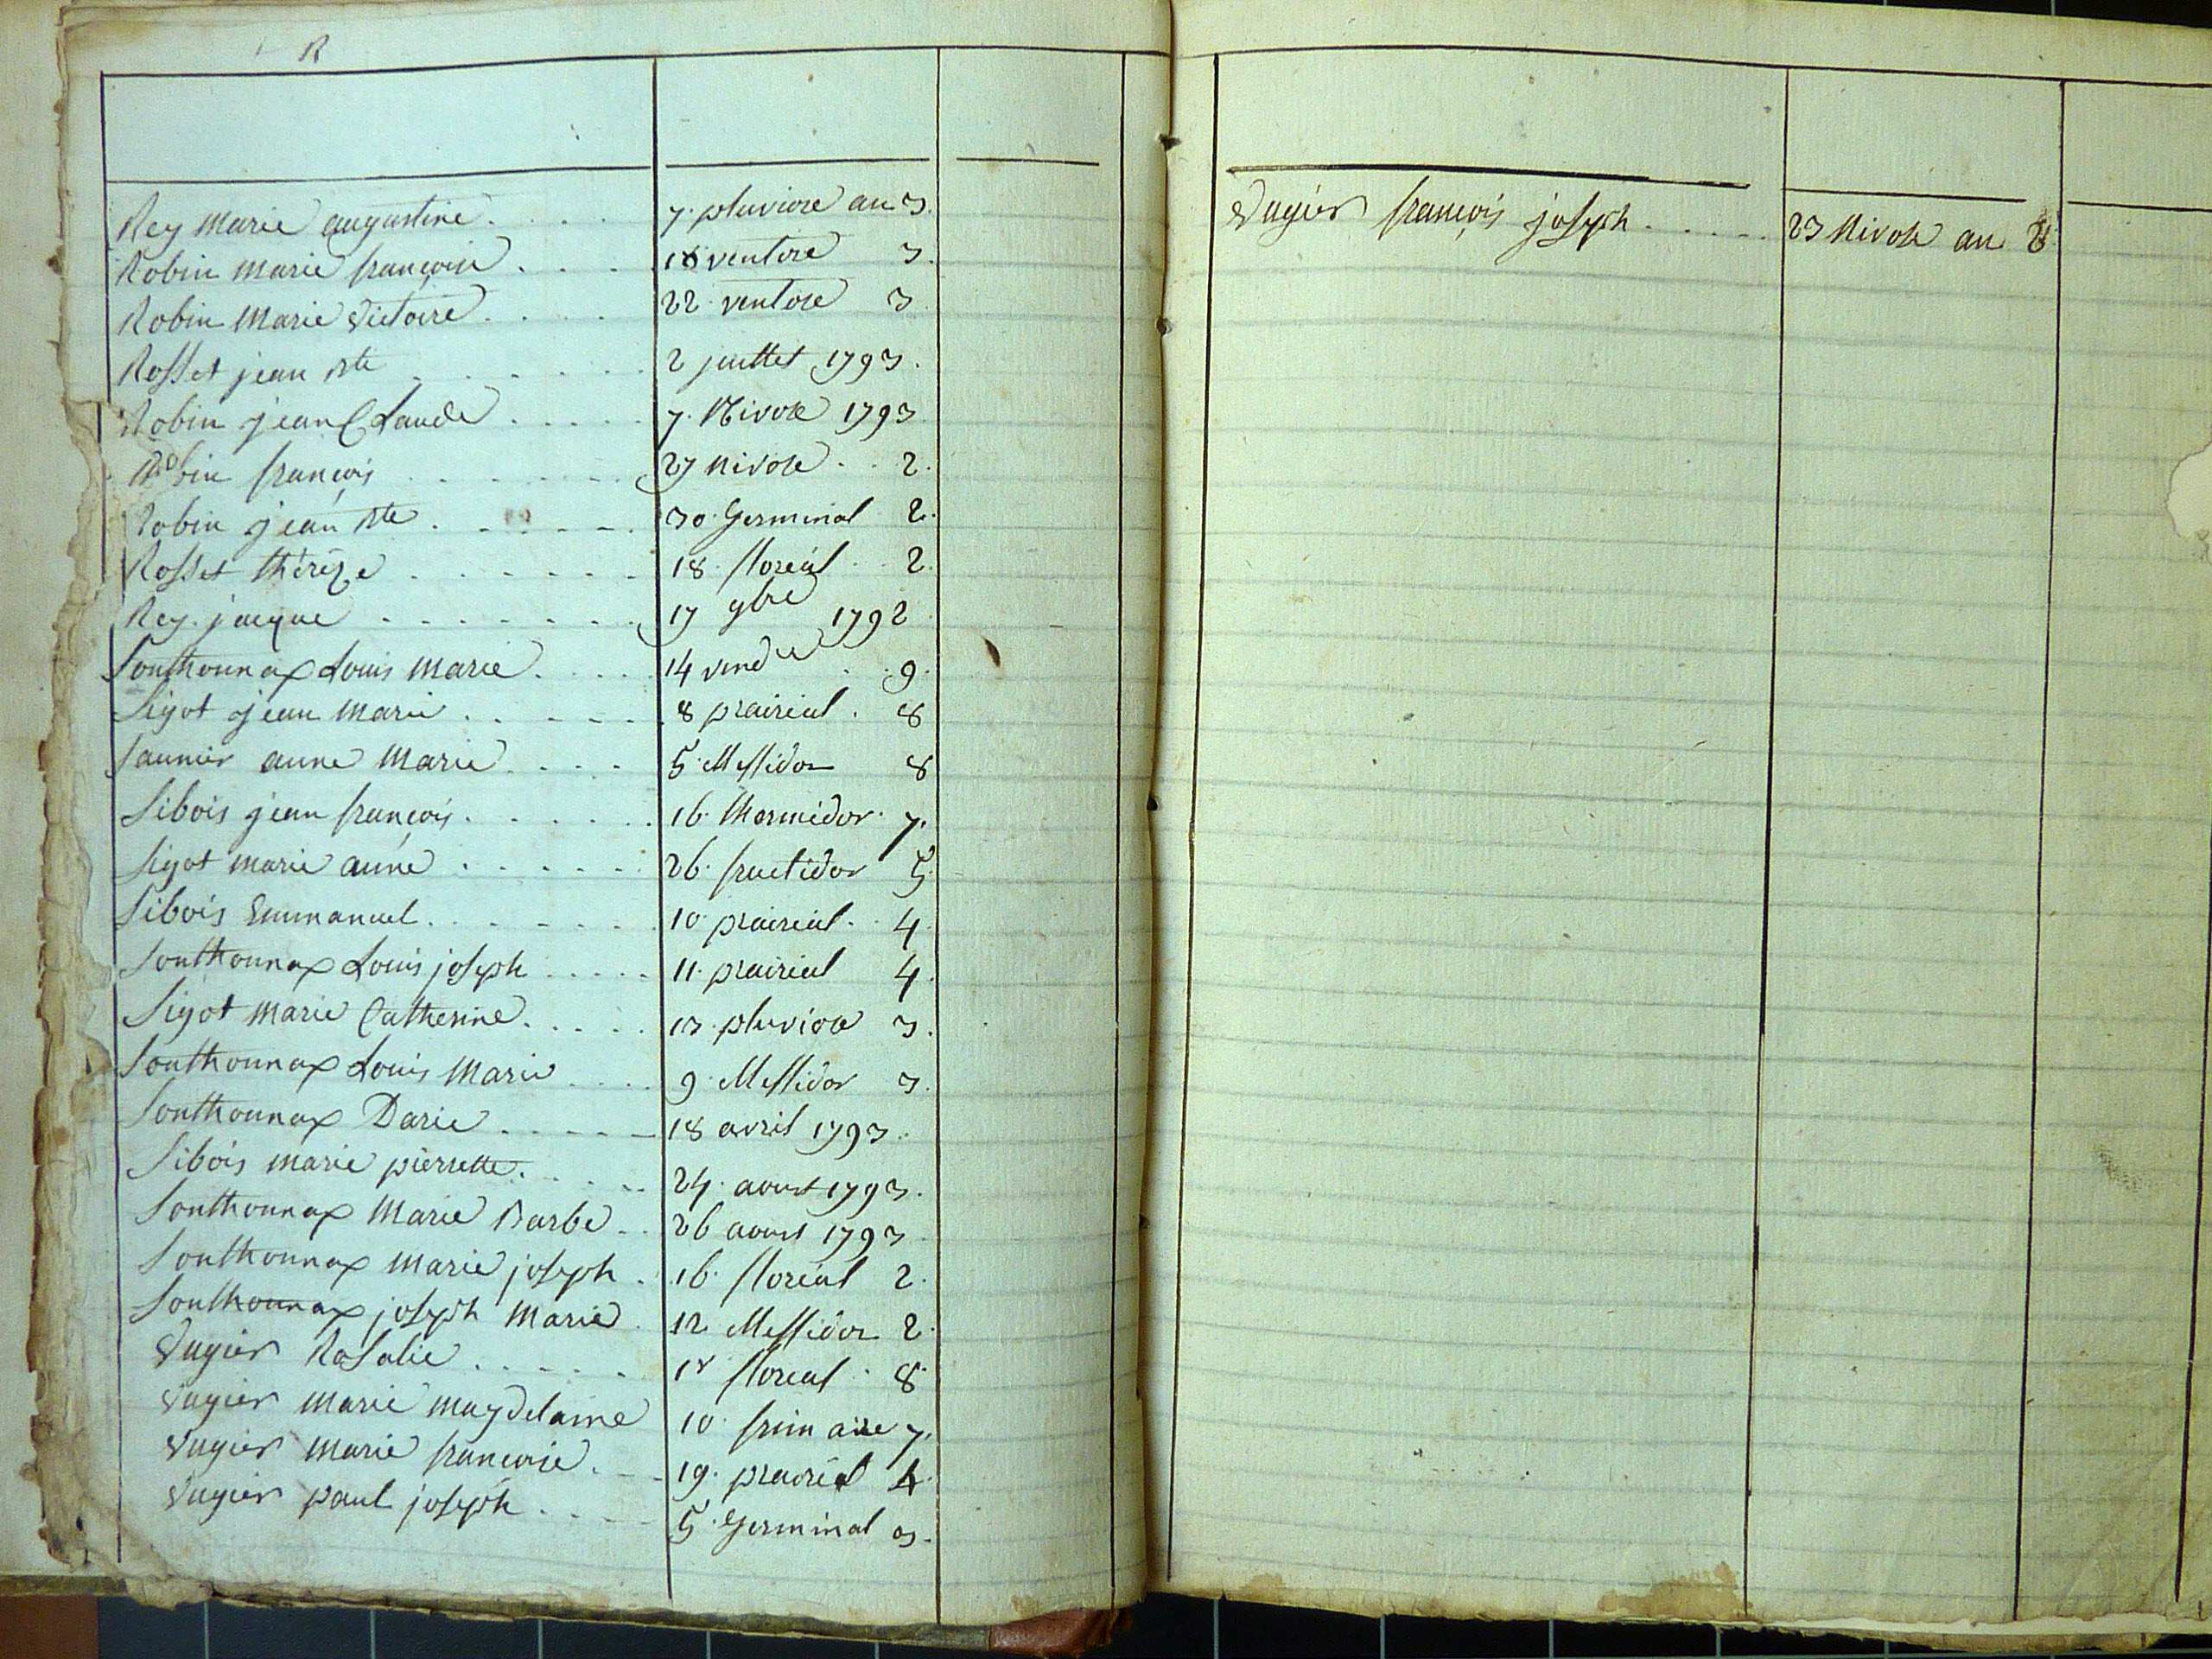 R
Rey Marie augustine 7. pluviose an 3.
Robin Marie françoise 18 ventose 3.
Robin Marie Victoire 22 ventose 3
Rosset jean Bte 2 juillet 1793.
Robin jean Claude 7. Nivose 1793
Robin françois 27 Nivose 2.
Robin jean Bte 30 Germinal 2.
Rosset thérèze 18 floréal 2.
Rey jacque 17 9bre 1792
Sonthonnax Louis Marie 14 vendre 9.
Sigot jean Marie 8 prairial 8
Saunier anne Marie 5 Messidor 8
Sibois jean françois 16 thermidor 7.
Sigot marie anne 26 fructidor 5.
Sibois Emmanuel 10 prairial 4
Sonthonnax Louis joseph 11 prairial 4.
Sigot Marie Catherine 13 pluviose 3.
Sonthonnax Louis Marie 9 Messidor 3.
Sonthonnax Darie 18 avril 1793.
Sibois marie pierrette 24 aoust 1793.
Sonthonnax Marie Barbe 26 aoust 1793
Sonthonnax Marie joseph 16 floréal 2.
Sonthonnax joseph Marie 12 Messidor 2.
Vugier Rosalie floreal 8
Vugier Marie magdelaine 10 frimaire 7.
Vugier Marie françoise 19. prairial 4.
Vugier paul joseph 5 Germinal 3.
Vugier françois joseph 23 Nivose an